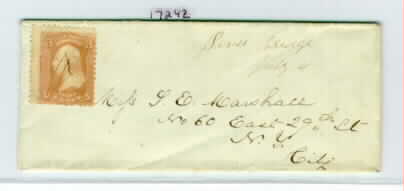 17242
July 4
Miss S E Marshall
No 60 East 29th St
N. Y.
City